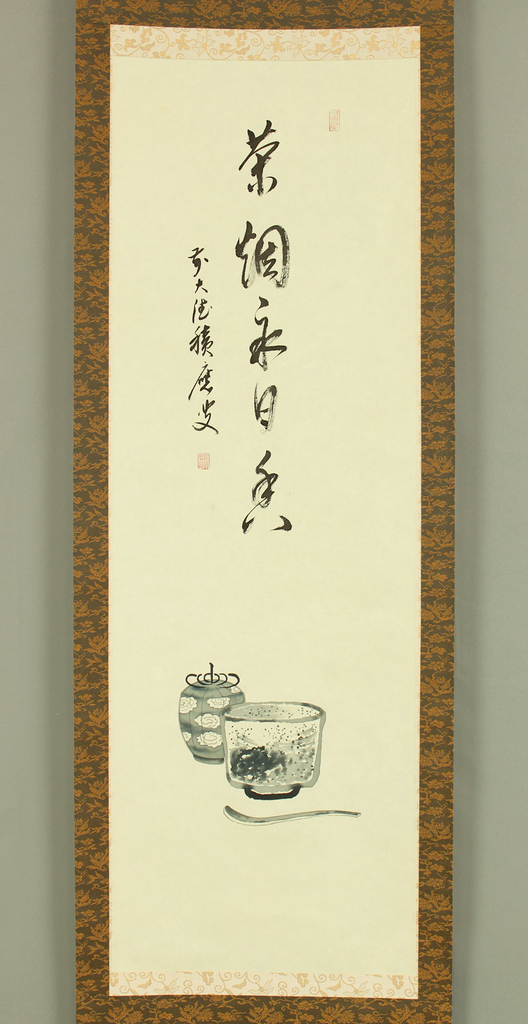 茶烟永日香
前大徳積應叟